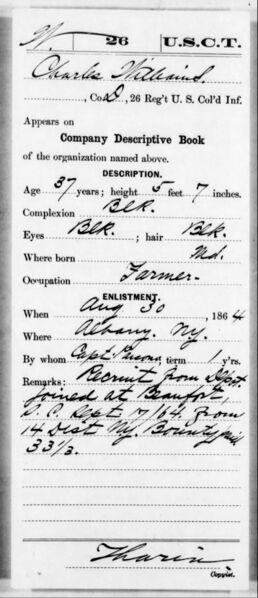 W. 26 U.S.C.T.
Charles Williams.
, Co. D, 26 Reg't U. S. Col'd Inf.
Appears on
Company Descriptive Book
of the organization named above.
DESCRIPTION.
Age 37 years; height 5 feet 7 inches.
Complexion Blk.
Eyes Blk. ; hair Blk.
Where born Md.
Occupation Farmer.
ENLISTMENT.
When Aug 30 , 1864
Where Albany, Ny.
By whom Capt. term 1 y'rs.
Remarks: Recruit from Depot
joined at Beaufort,
S. C. Sept 7/64. From
14 Dist Ny. Bounty
33 1/3.
Tharin
Copyist.